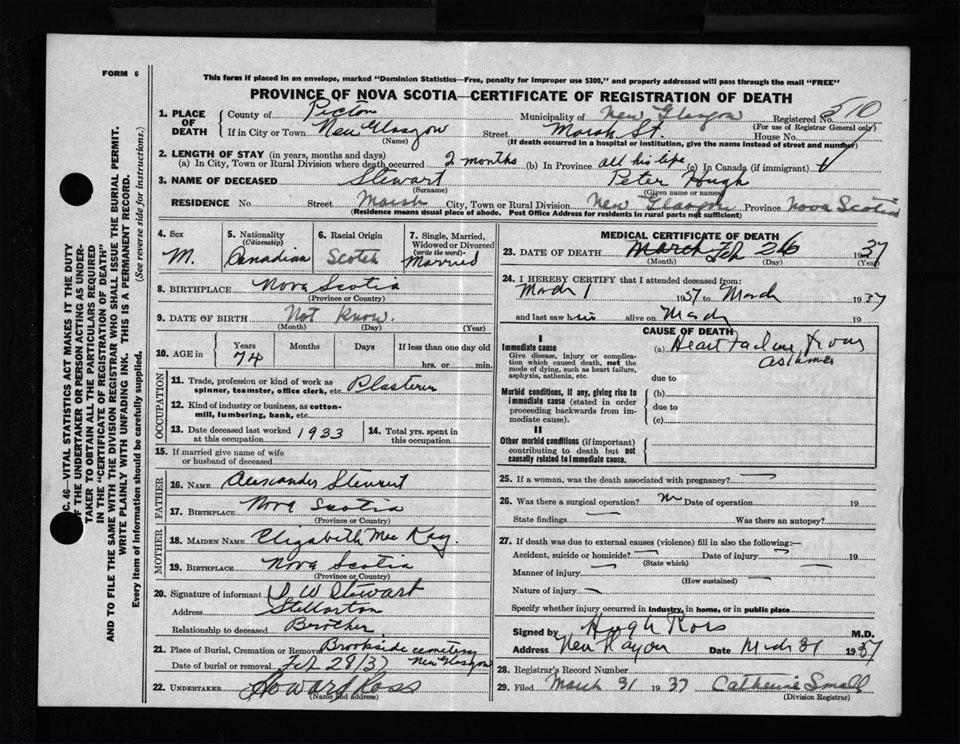 FORM 6
This form if placed in an envelope, marked "Dominion Statistics—Free, penalty for improper use $300," and properly addressed will pass through the mail "FREE"
PROVINCE OF NOVA SCOTIA—CERTIFICATE OF REGISTRATION OF DEATH
1. PLACE OF DEATH
County of Pictou Municipality of New Glasgow Registered No. 510
(For use of Registrar General only)
If in City or Town New Glasgow Street Marsh St. House No.
(Name) (If death occurred in a hospital or institution, give the name instead of street and number)
2. LENGTH OF STAY (in years, months and days)
(a) In City, Town or Rural Division where death occurred 2 months (b) In Province all his life (c) In Canada (if immigrant)
3. NAME OF DECEASED Stewart Peter Hugh
(Surname) (Given name or names)
RESIDENCE No. Street Marsh City, Town or Rural Division New Glasgow Province Nova Scotia
(Residence means usual place of abode. Post Office Address for residents in rural parts not sufficient)
4. Sex
M.
5. Nationality
(Citizenship)
Canadian
6. Racial Origin
Scotch
7. Single, Married, Widowed or Divorced
(write the word)
Married
8. BIRTHPLACE Nova Scotia
(Province or Country)
9. DATE OF BIRTH Not Know.
(Month) (Day) (Year)
10. AGE in
Years Months Days If less than one day old
74 hrs. or min.
OCCUPATION
11. Trade, profession or kind of work as
spinner, teamster, office clerk, etc. Plasterer
12. Kind of industry or business, as cotton-
mill, lumbering, bank, etc.
13. Date deceased last worked at this occupation 1933
14. Total yrs. spent in this occupation
15. If married give name of wife
or husband of deceased
FATHER
16. NAME Alexander Stewart
17. BIRTHPLACE Nova Scotia
(Province or Country)
MOTHER
18. MAIDEN NAME Elizabeth Mac Kay.
19. BIRTHPLACE Nova Scotia
(Province or Country)
20. Signature of informant W Stewart
Address Stellarton
Relationship to deceased Brother
21. Place of Burial, Cremation or Removal Brookside cemetery
Date of burial or removal Feb 28/37 New Glasgow
22. UNDERTAKER Howard Ross
(Name and address)
MEDICAL CERTIFICATE OF DEATH
23. DATE OF DEATH March Feb 26 1937
(Month) (Day) (Year)
24. I HEREBY CERTIFY that I attended deceased from:
March 1 1937 to March 1937
and last saw him alive on March 19
CAUSE OF DEATH
I
Immediate cause
Give disease, injury or complica-
tion which caused death, not the
mode of dying, such as heart failure,
asphyxia, asthenia, etc.
(a) Heart Failure from
asthma
due to
Morbid conditions, if any, giving rise to
immediate cause (stated in order
proceeding backwards from im-
mediate cause).
(b)
due to
(c)
II
Other morbid conditions (if important)
contributing to death but not
causally related to immediate cause.
25. If a woman, was the death associated with pregnancy?
26. Was there a surgical operation? no Date of operation 19
State findings Was there an autopsy?
27. If death was due to external causes (violence) fill in also the following:—
Accident, suicide or homicide? Date of injury 19
(State which)
Manner of injury
(How sustained)
Nature of injury
Specify whether injury occurred in industry, in home, or in public place
Signed by Hugh Ross M.D.
Address Date March 31 1937
28. Registrar's Record Number
29. Filed March 31 1937 Catherine Small
(Division Registrar)
C. 46—VITAL STATISTICS ACT MAKES IT THE DUTY
OF THE UNDERTAKER OR PERSON ACTING AS UNDER-
TAKER TO OBTAIN ALL THE PARTICULARS REQUIRED
IN THE "CERTIFICATE OF REGISTRATION OF DEATH"
AND TO FILE THE SAME WITH THE DIVISION REGISTRAR WHO SHALL ISSUE THE BURIAL PERMIT.
WRITE PLAINLY WITH UNFADING INK. THIS IS A PERMANENT RECORD.
Every item of information should be carefully supplied. (See reverse side for instructions.)